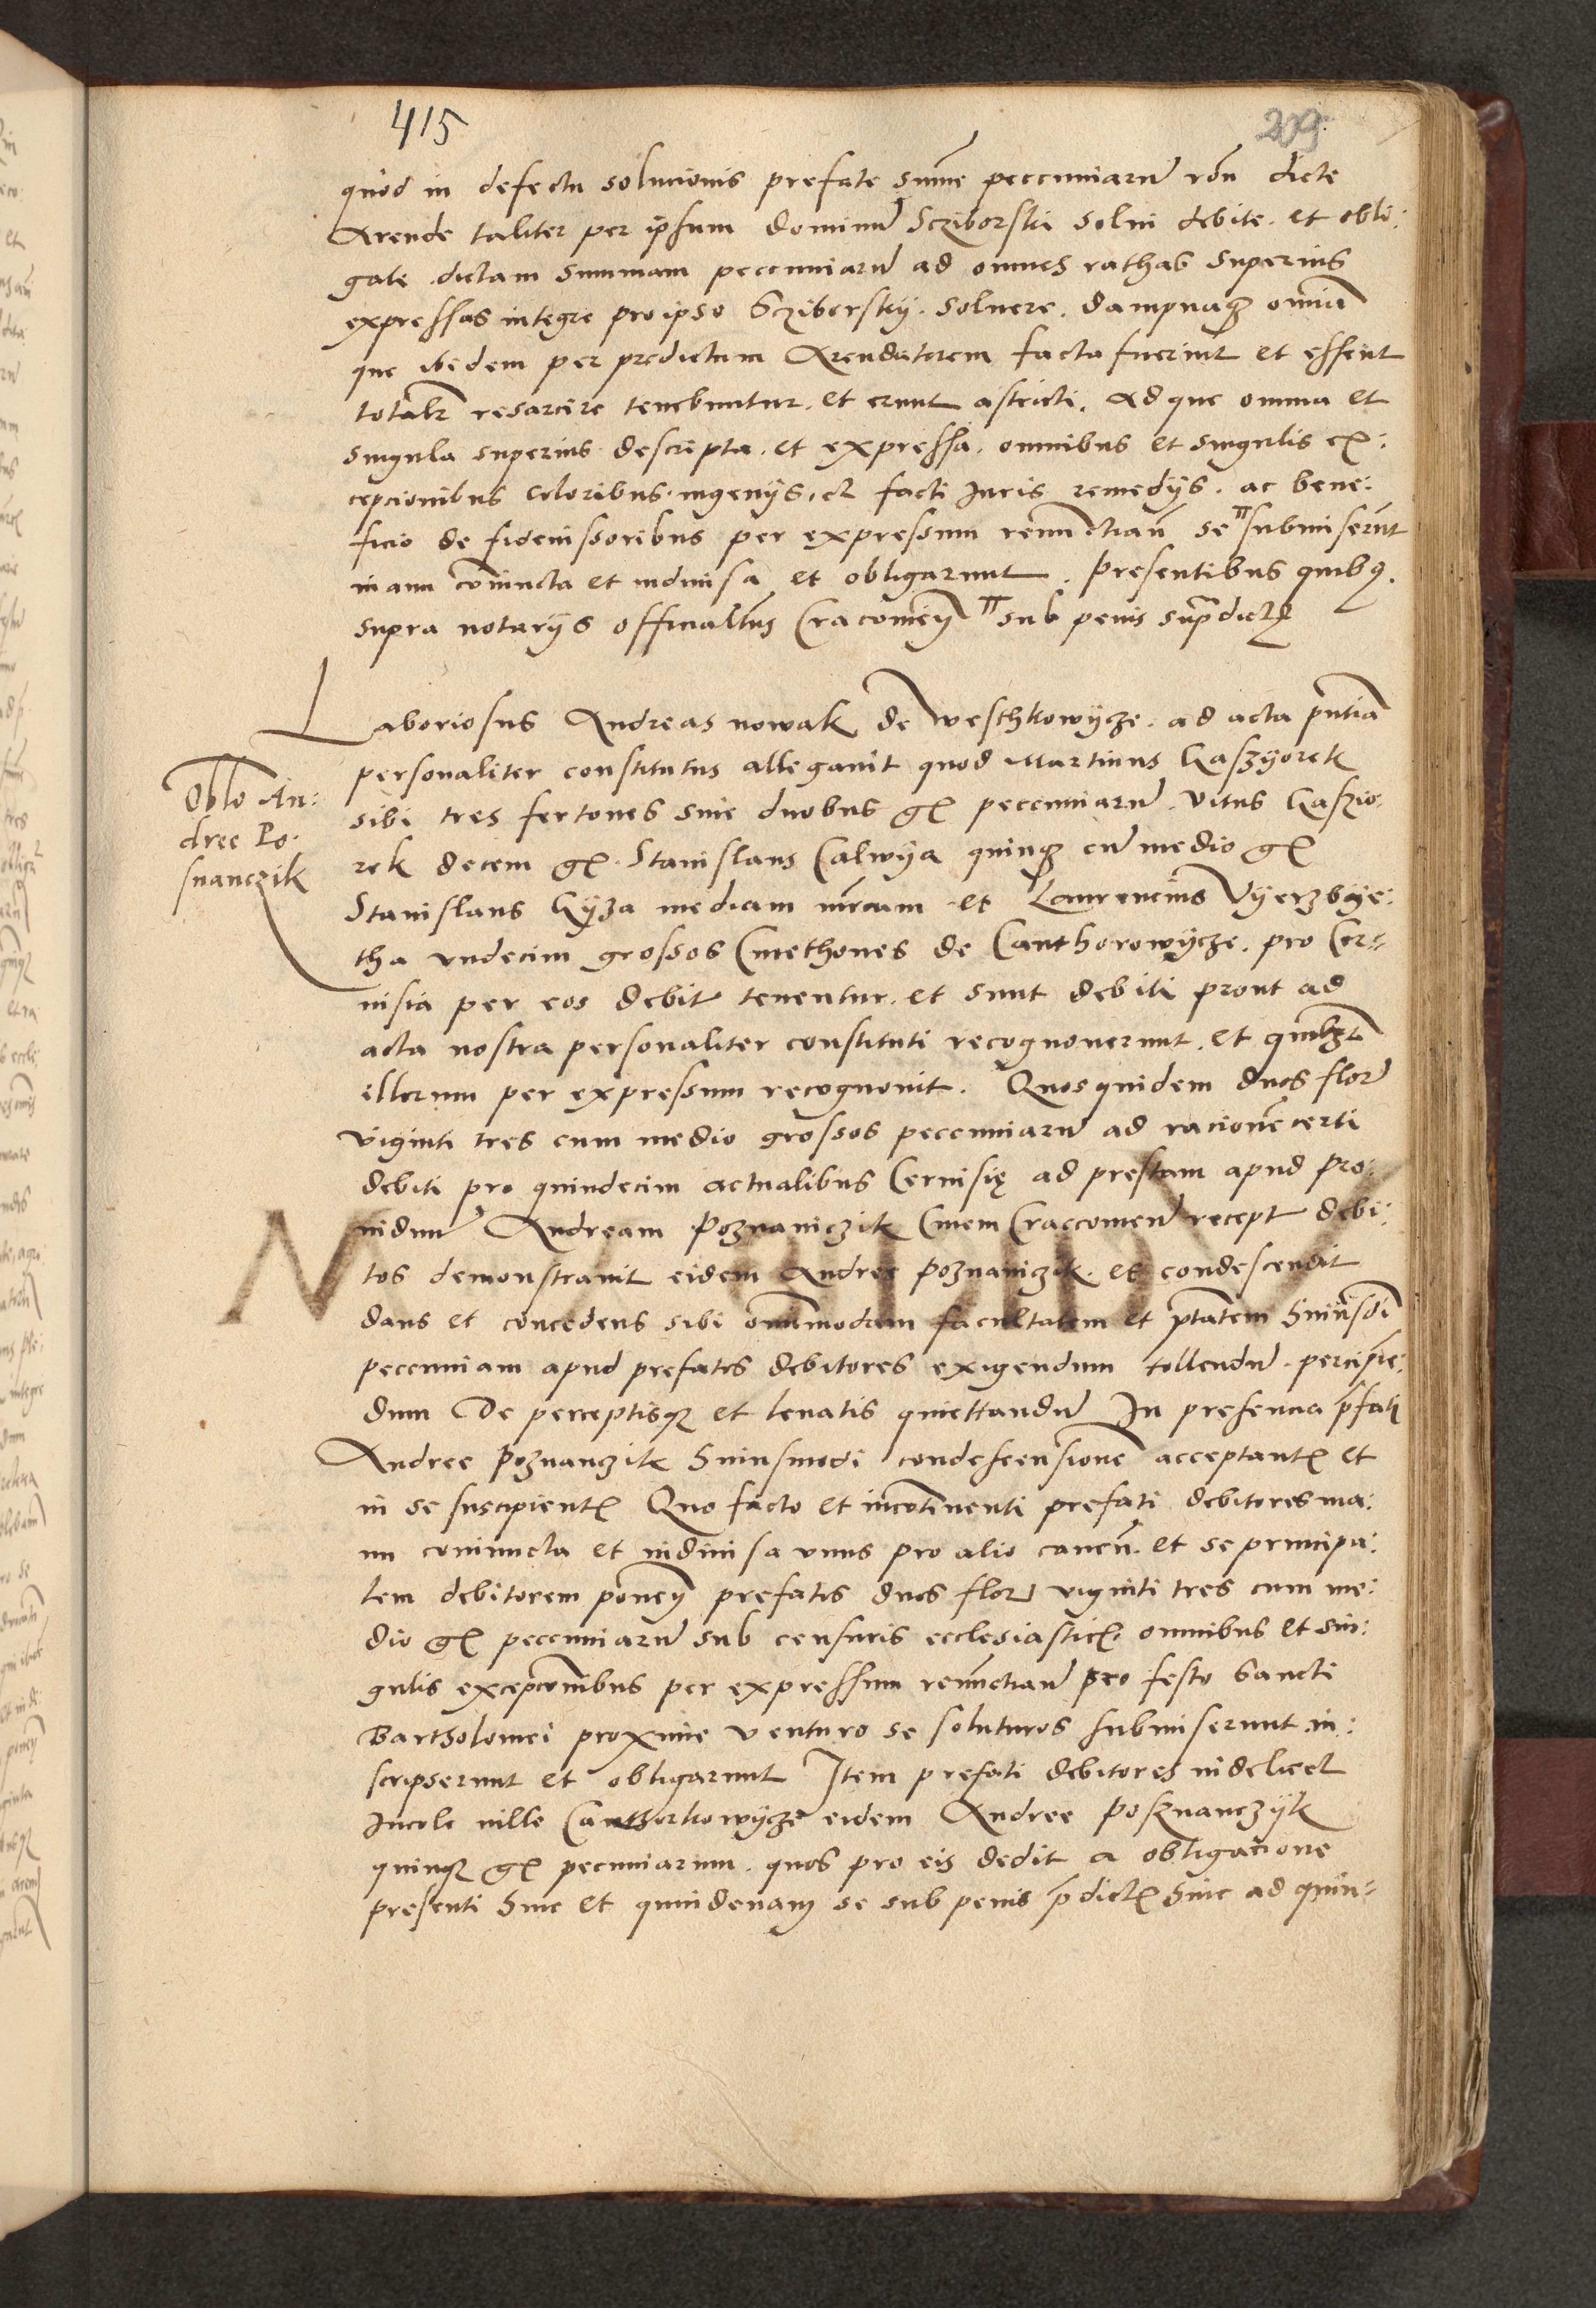 415
209
quod in defectu solucionis prefate sum̄e peccuniarū rōn dicte
Arende taliter per ipsum dominū Scziborski solui debite. et obli:
gate dictam summam peccuniarū ad omnes rathas superius
expressas integre pro ipso Scziborsky. soluere. dampnaqȝ om̄ia
que ibidem per predictum Arendatorem facta fuerint et essent
totalr̄ resarcire tenebuntur. et erunt astricti. Ad que omnia et
singula superius descripta. et expressa. omnibus et singulis ex:
cepcionibus coloribus. ingenijs. et facti Juris remedijs. ac bene:
ficio de fideiussoribus per expressum renuctian̄ se ╥ submiserūt
manu coniuncta et indiuisa et obligarunt. Presentibus quibꝰ.
supra notarijs officialibus Cracouień ╥ sub penis sup̄radictꝭ
Laboriosus Andreas nowak de Weschkowycze. ad acta pn̄tia
personaliter constitutus allegauit quod Martinus Kaszyorek
Oblo An:
dree Po:
snanczik
sibi tres fertones sine duobus gꝭ peccuniarū. Vitus Kaszio:
rek decem gꝭ. Stanislaus Calwya quinqȝ cū medio gꝭ
Stanislaus Gyza mediam mr̄cam et Laurencius Vyerzbye:
tha vndecim grossos Cmethones de Canthorowycze. pro Cer-
uisia per eos debit̄ tenentur. et sunt debiti prout ad
acta nostra personaliter constituti recognouerunt. et quilibet
illorum per expressum recognouit. Quosquidem duos florē
viginti tres cum medio grossos peccuniarū ad racionē certi
debiti pro quindecim actualibus Ceruisię ad prestam apud Pro:
uidum Andream Poznaniczik Ciuem Craccouień recept̄ debi:
tos demonstrauit eidem Andree Poznaniczik. et condescendit
dans et concedens sibi om̄imodam facultatem et ptātem huiusmodi
peccuniam apud prefatos debitores exigendum tollendū. percipien:
dum De perceptisqȝ et leuatis quiettandū In presencia p̄fati
Andree Poznanczik huiusmodi condescensionē acceptantꝭ et
in se suscipientꝭ Quo facto et incōtinenti prefati debitores ma:
nu coniuncta et indiuisa vnus pro alio cauen̄. et se principa:
lem debitorem poneń prefatos duos florē viginti tres cum me:
dio gꝭ peccuniarū sub censuris ecclesiasticꝭ. omnibus et sin:
gulis excepcōnibus per expressum renūctian̄ pro festo Sancti
Bartholomei proxime venturo se soluturos submiserunt. in:
scripserunt et obligarunt Item prefati debitores videlicet
Incole ville Canthorkowycze eidem Andree Posznanczyk
quinqȝ gꝭ pecuniarum. quos pro eis dedit a obligacione
presenti hinc et quindenam se sub penis p̄dictꝭ hinc ad quin-